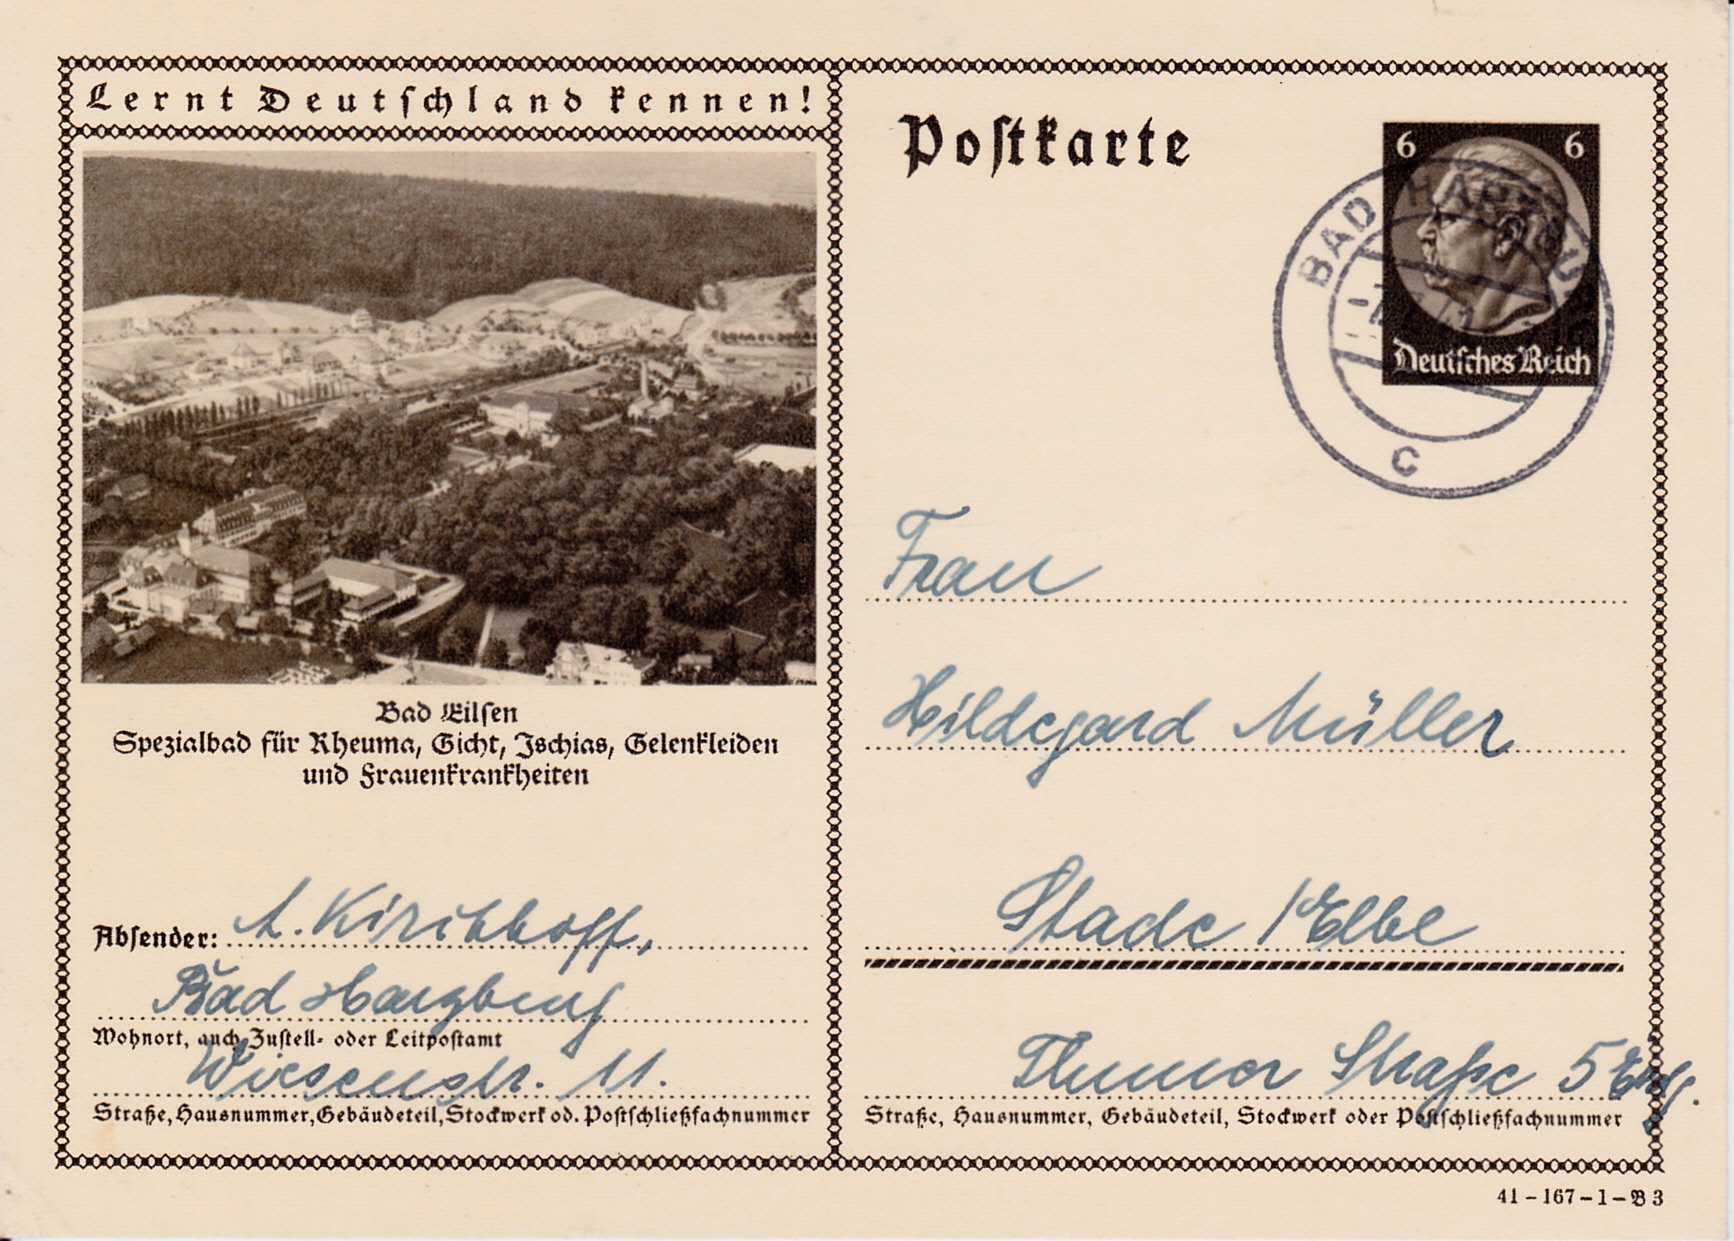 Lernt Deutschland kennen!
Bad Eilsen
Spezialbad für Rheuma, Gicht, Ischias, Gelenkleiden
und Frauenkrankheiten
Absender: A. Kirchhoff,
Bad Harzburg
Wohnort, auch Zustell- oder Leitpostamt
Wiesenstr. 11.
Straße, Hausnummer, Gebäudeteil, Stockwerk od. Postschließfachnummer
Postkarte
6 6
Deutsches Reich
BAD HARZBU
c
Frau
Hildegard Müller
Stade /Elbe
Straße 5
Straße, Hausnummer, Gebäudeteil, Stockwerk oder Postschließfachnummer
41-167-1-B 3